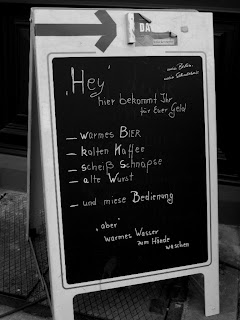 "Hey"
hier bekommt Ihr
für Euer Geld
– warmes BIER
– kalten Kaffee
– scheiß Schnäpse
– alte Wurst
– und miese Bedienung
"aber"
warmes Wasser
zum Hände
waschen